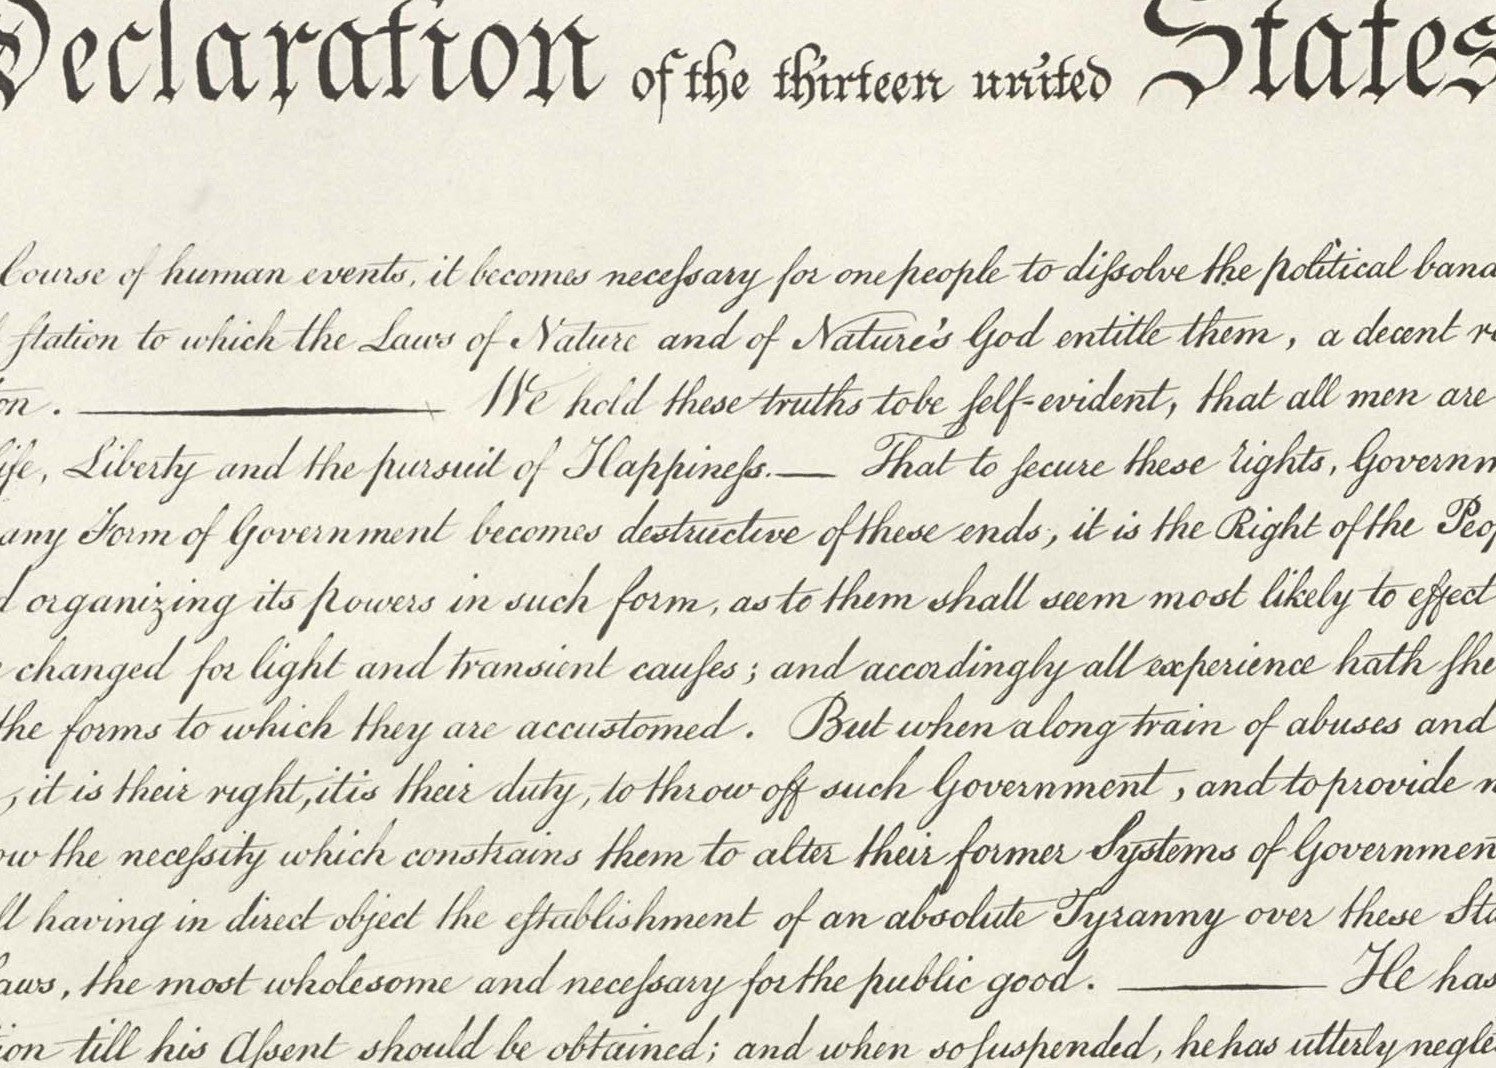 Declaration of the thirteen united States
Course of human events, it becomes neceſsary for one people to diſsolve the political band
ſtation to which the Laws of Nature and of Nature's God entitle them, a decent re
on. We hold these truths to be ſelf-evident, that all men are
ife, Liberty and the pursuit of Happineſs.— That to ſecure these rights, Governm
any Form of Government becomes destructive of these ends, it is the Right of the Peop
d organizing its powers in such form, as to them shall seem most likely to effect
changed for light and transient cauſes; and accordingly all experience hath ſhe
the forms to which they are accustomed. But when a long train of abuses and
, it is their right, it is their duty, to throw off such Government, and to provide n
ow the neceſsity which constrains them to alter their former Systems of Governmen
ll having in direct object the eſtablishment of an absolute Tyranny over these Sta
aws, the most wholesome and neceſsary for the public good. — He has
ion till his Aſsent should be obtained; and when so ſuspended, he has utterly negle